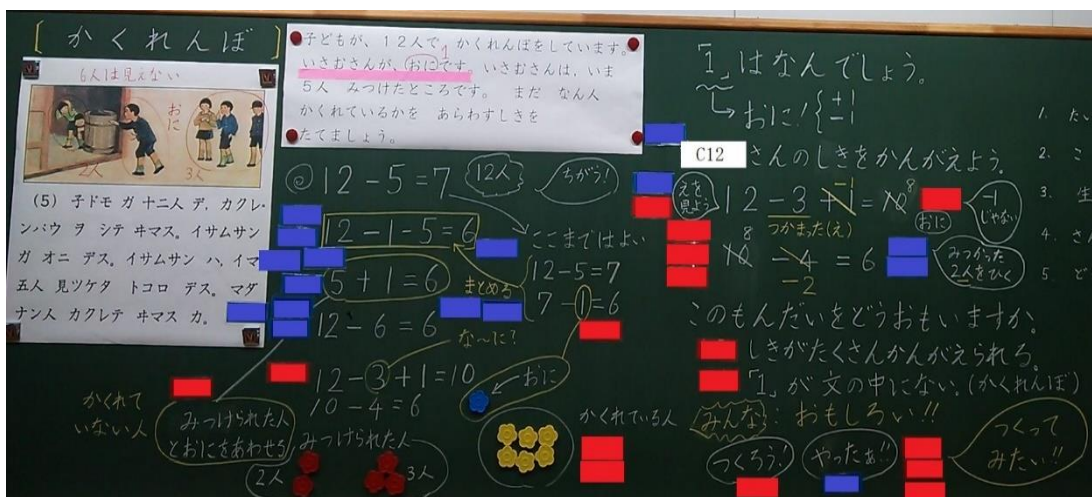 [ かくれんぼ ]
6人は見えない
おに
2人
3人
(5) 子ドモ ガ 十二人 デ、カクレ
ンバウ ヲ シテ ヰマス。イサムサン
ガ オニ デス。イサムサン ハ、イマ
五人 見ツケタ トコロ デス。マダ
ナン人 カクレテ ヰマス カ。
子どもが、12人で、かくれんぼをしています。
1
いさむさんが、おにです。いさむさんは、いま
5人 みつけたところです。 まだ なん人
かくれているかを あらわすしきを
たてましょう。
◎ 12-5=7
12人
ちがう!
12-1-5=6
5+1=6
12-6=6
12-3+1=10
10-4=6
ここまではよい
12-5=7
7-1=6
まとめる
な〜に?
おに
かくれて
いない人
みつけられた人
とおにをあわせる
みつけられた人
2人
3人
かくれている人
「1」はなんでしょう。
おに! { +1
-1
C12 さんのしきをかんがえよう。
えを
見よう
12-3+1=10
-1
8
つかまった(え)
おに
-1
じゃない
8
10-4=6
-2
みつかった
2人をひく
このもんだいをどうおもいますか。
しきがたくさんかんがえられる。
「1」が文の中にない。(かくれんぼ)
みんな:おもしろい!!
つくろう!
やったぁ!!
つくって
みたい!!
1. た
2. こ
3. 生
4. さ
5. ど